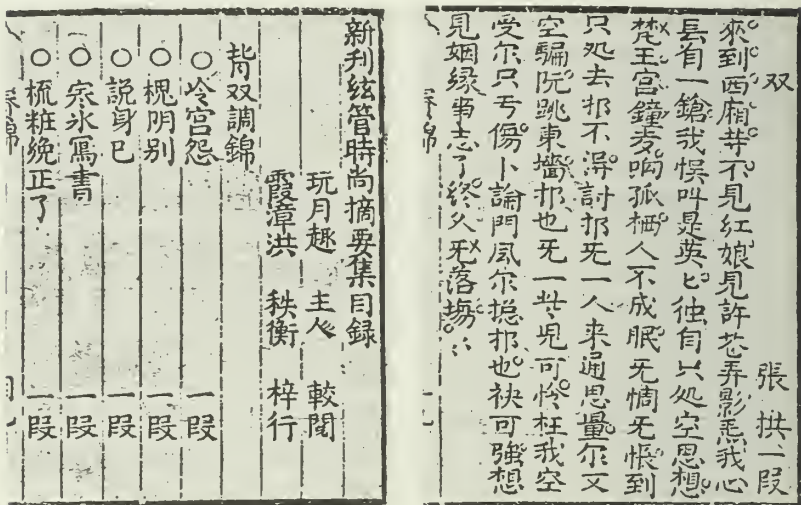 双　張拱一段
來到西廂等不見紅娘見許花弄影焄我心
县有一鎗我悞叫是英〻独自只处空思想
梵王宫鐘声响孤栖人不成眠无惰无悵到
只处去邦不淂討邦无一人来通思量尔又
空騙阮跳東墻邦也无一共児可怜枉我空
受尔只亏傷卜論門風尔捴邦也袂可強想
見姻缘事志了終久无落塲〻
新刋絃管時尚摘要集目録
玩月趣　主人　較閲
霞漳洪　秩衡　梓行
背双調錦
○冷宫怨　一段
○槐阴别　一段
○説身己　一段
○冞氷寫書
○梳粧绕正了　一段